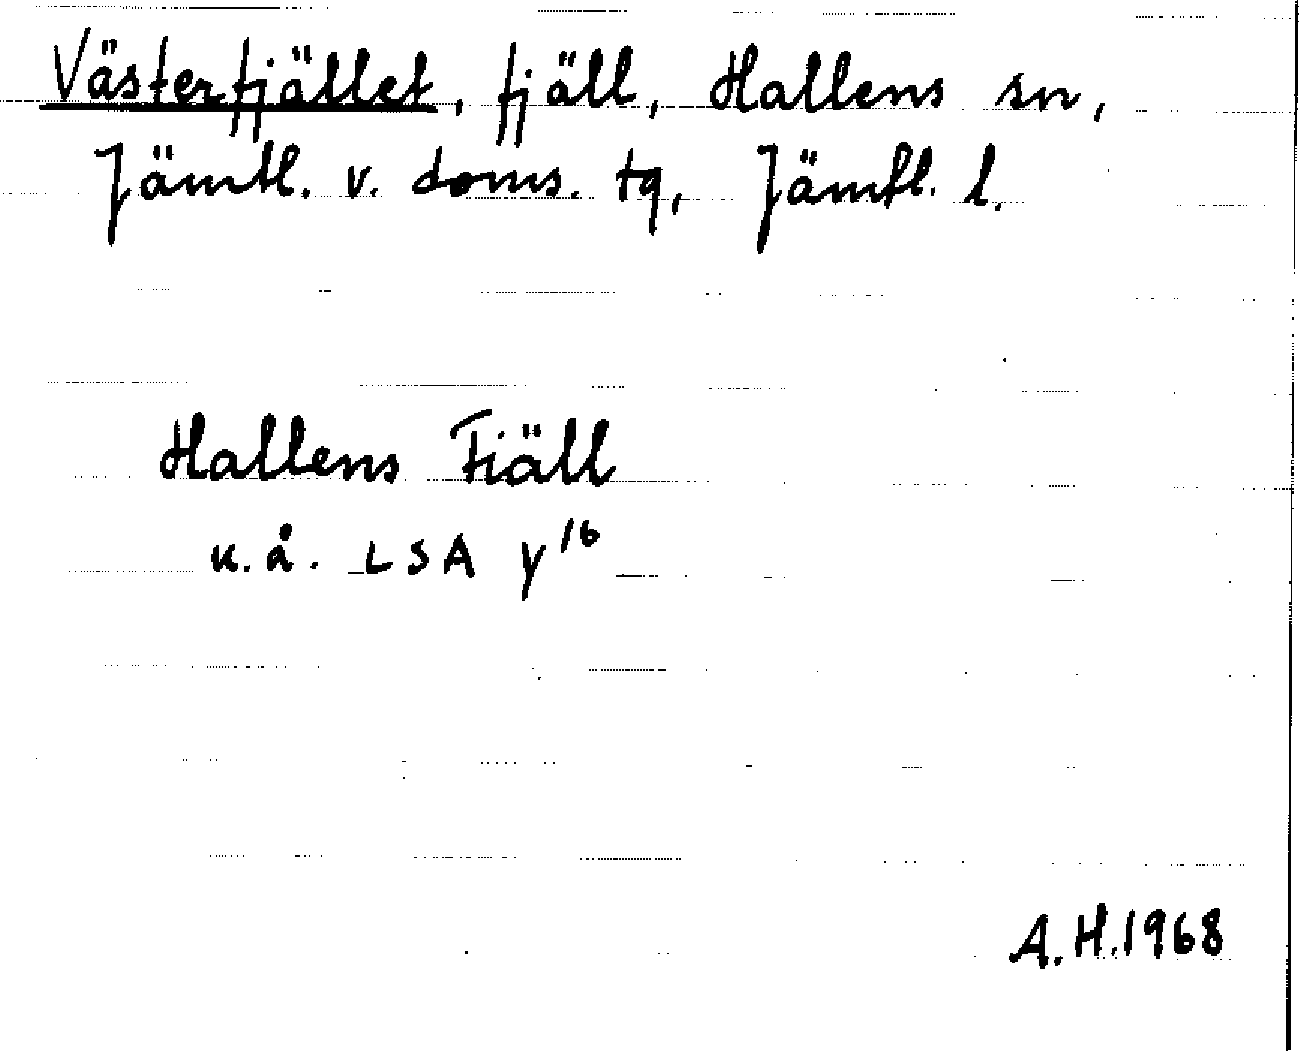 Västerfjället, fjäll, Hallens sn,
Jämtl. v. doms. tg, Jämtl. l.
Hallens Fiäll
u.å. LSA y¹⁶
A.H.1968